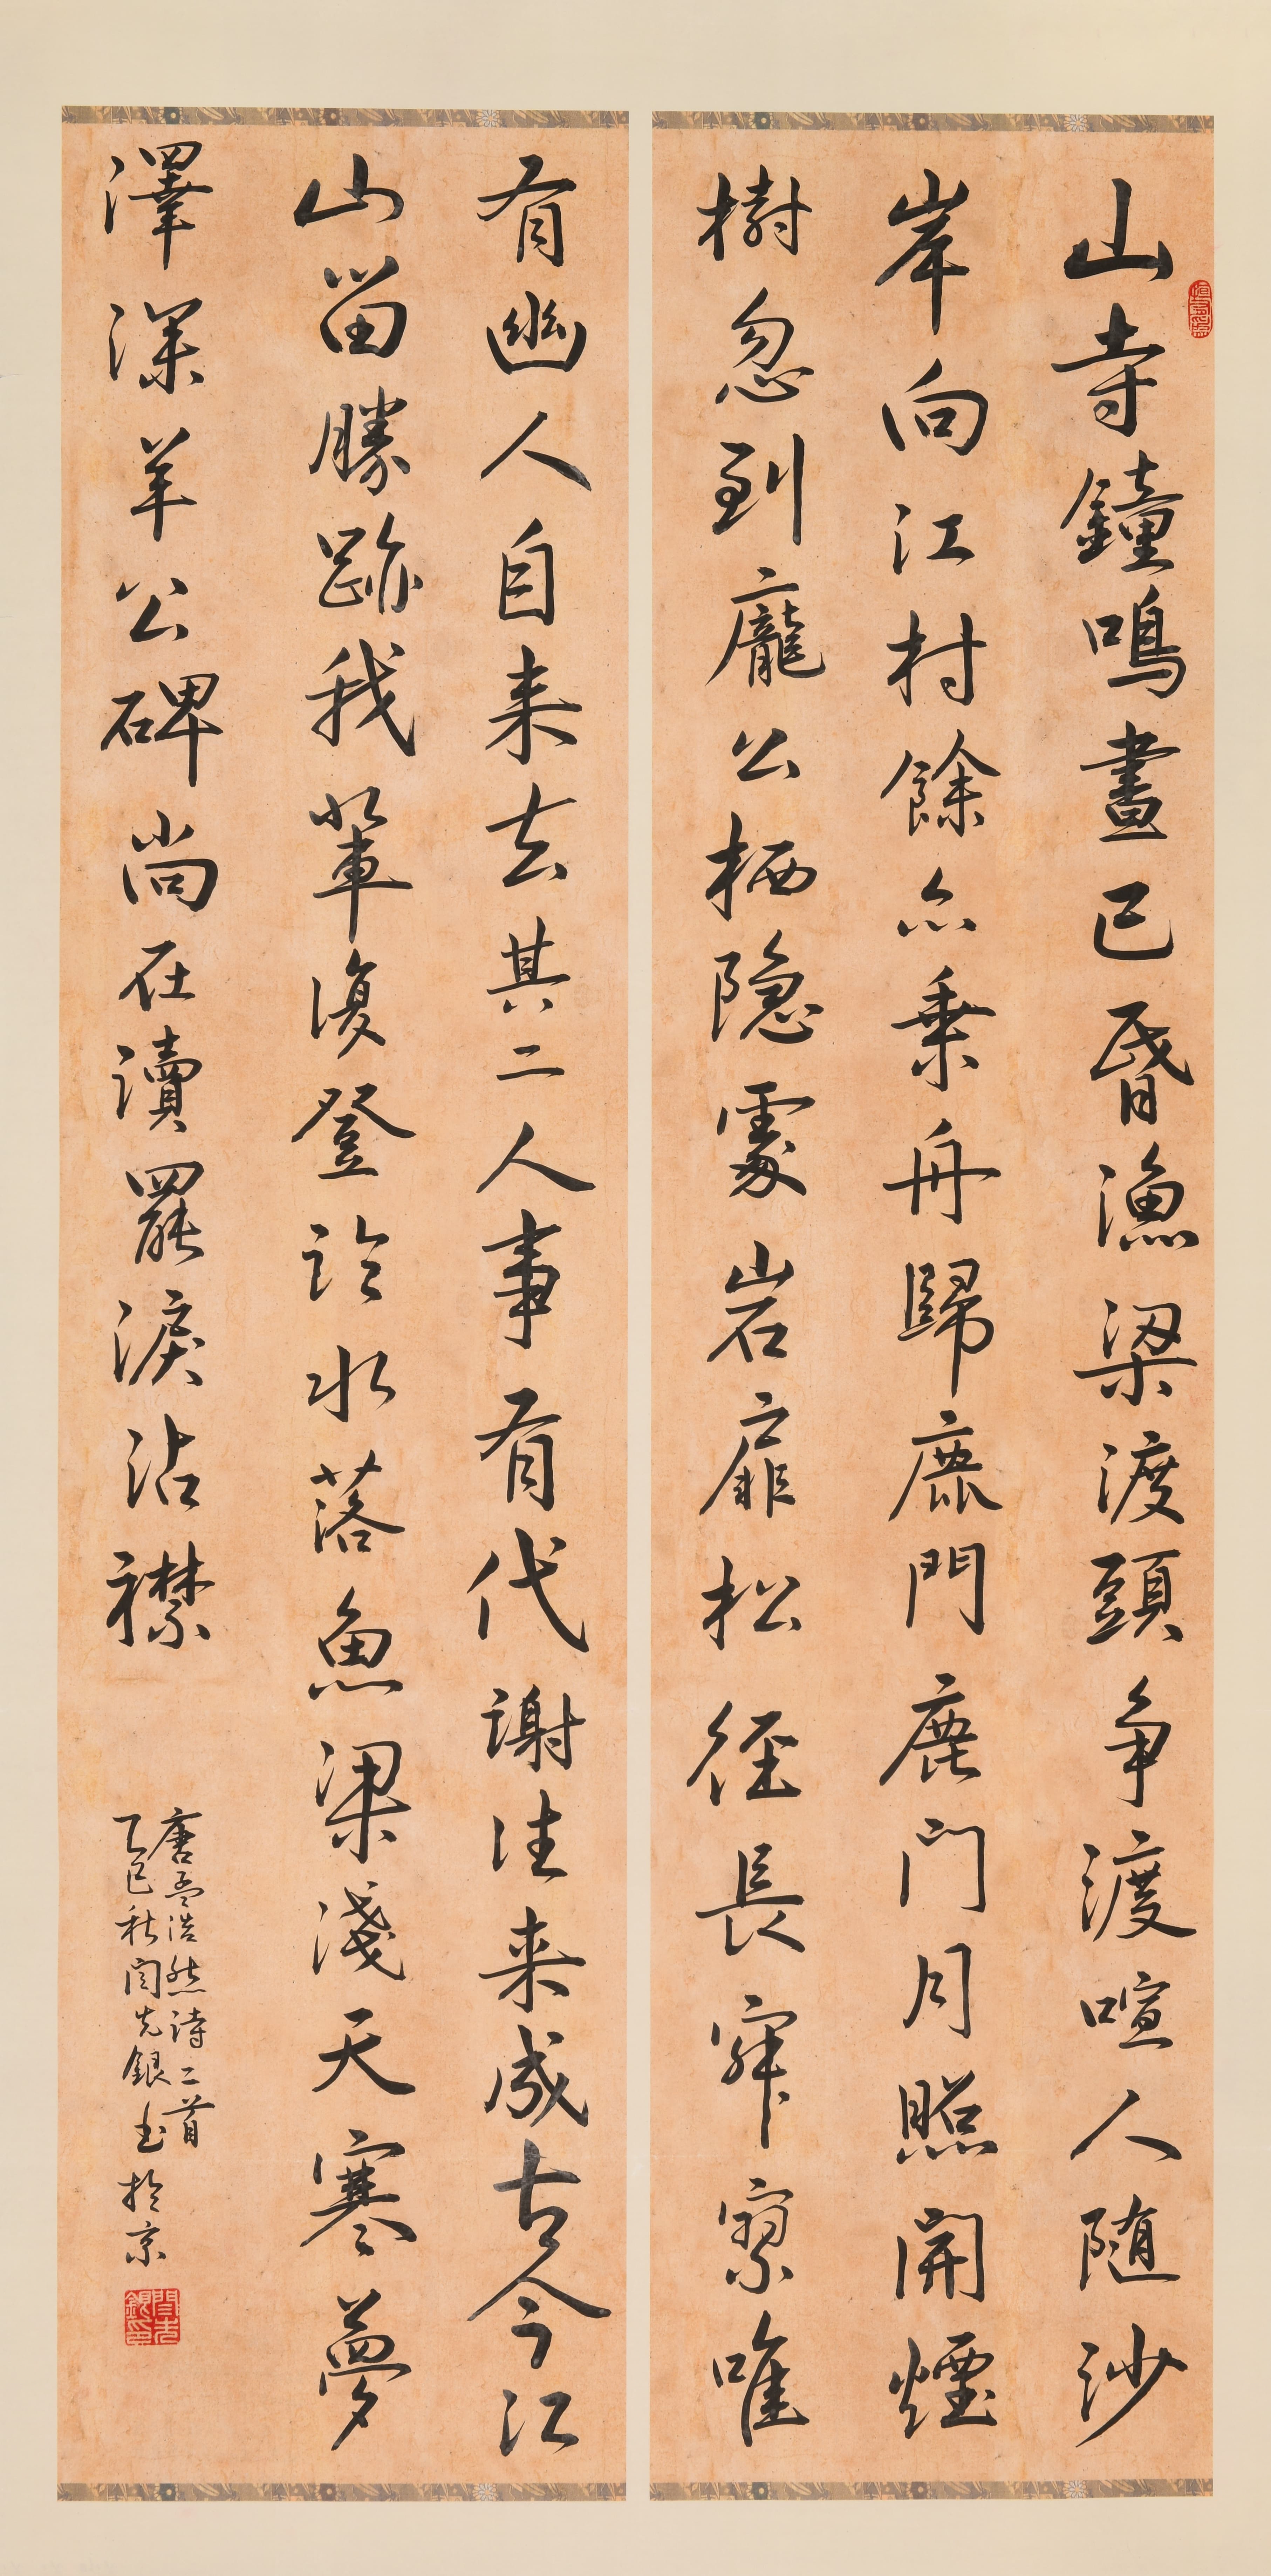 山寺鐘鳴晝已昏漁梁渡頭争渡喧人随沙
岸向江村余亦乗舟歸鹿門鹿门月照開煙
樹忽到龐公栖隐處岩扉松径長寂寥唯
有幽人自来去其二人事有代謝往来成古今江
山留勝跡我輩復登临水落魚梁淺天寒夢
澤深羊公碑尚在讀罷淚沾襟
唐孟浩然詩二首
乙巳秋闫先銀书於京